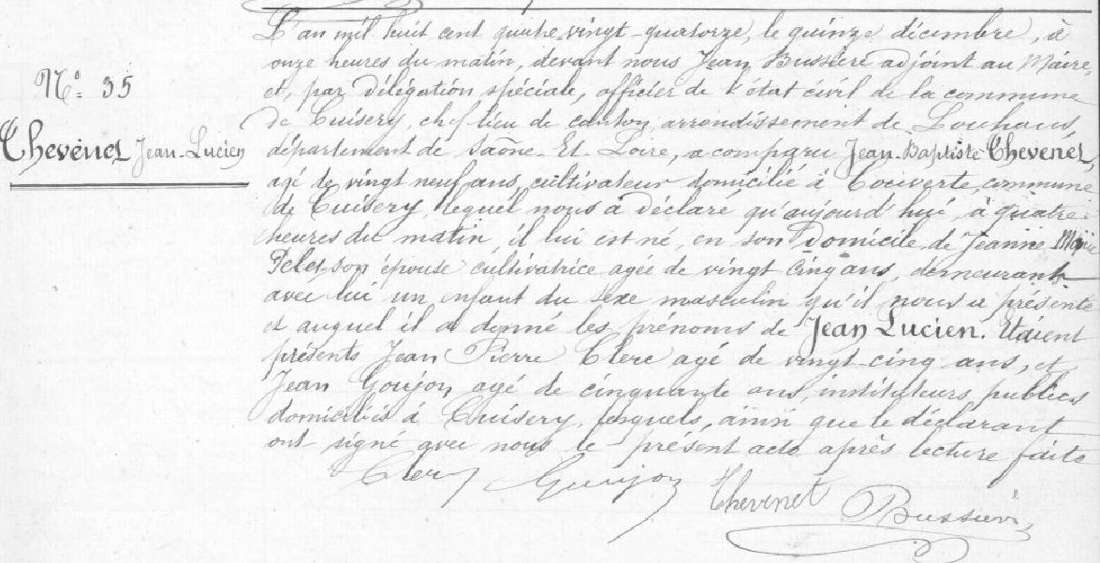 N° 35
Thevenet Jean-Lucien
L'an mil huit cent quatre vingt-quatorze, le quinze décembre, à
onze heures du matin, devant nous Jean Bussière adjoint au Maire,
et, par délégation spéciale, officier de l'état civil de la commune
de Cuisery, chef lieu de canton, arrondissement de Louhans,
département de Saône-Et-Loire, a comparu Jean-Baptiste Thevenet,
agé de vingt neuf ans, cultivateur domicilié à commune
de Cuisery, lequel nous a déclaré qu'aujourd'hui, à quatre
heures du matin, il lui est né, en son domicile, de Jeanne Marie
son épouse cultivatrice agée de vingt cinq ans, demeurant
avec lui un enfant du sexe masculin qu'il nous a présenté
et auquel il a donné les prénoms de Jean Lucien. Etaient
présents Jean Pierre Clerc agé de vingt-cinq ans, et
Jean Goujon, agé de cinquante ans, instituteurs publics
domiciliés à Cuisery, lesquels, ainsi que le déclarant
ont signé avec nous le présent acte après lecture faite
Clerc Goujon Thevenet Bussière